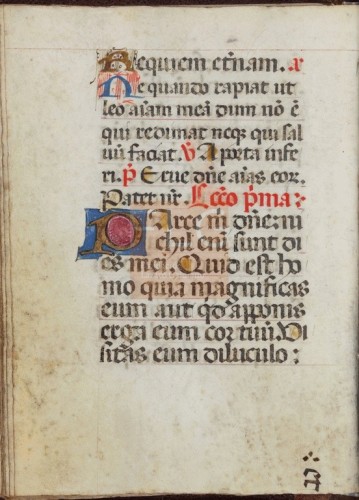 Requiem et̃nam. a
Ne quando rapiat ut
leo aĩam meã dum nõ ẽ
qui redimat neqꝫ qui sal
uũ faciat. V̄ A porta infe
ri. R̄ Erue dñe aĩas eor̃.
Pater nr̃. Lcc̃o p̃ma :
Parce m̃ dñe: ni
chil eñi sunt di
es mei. Quid est ho
mo quia magnificas
eum aut qd̃ apponis
erga eum cor tuũ. Vi
sitas eum diluculo :